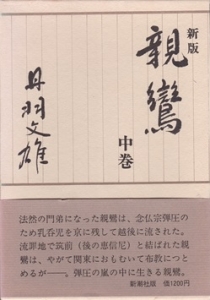 新版
親鸞
中巻
丹羽文雄
法然の門弟になった親鸞は、念仏宗弾圧の
ため乳呑児を京に残して越後に流された。
流罪地で筑前(後の恵信尼)と結ばれた親
鸞は、やがて関東におもむいて布教につと
めるが――。弾圧の嵐の中に生きる親鸞。
新潮社版 価1200円